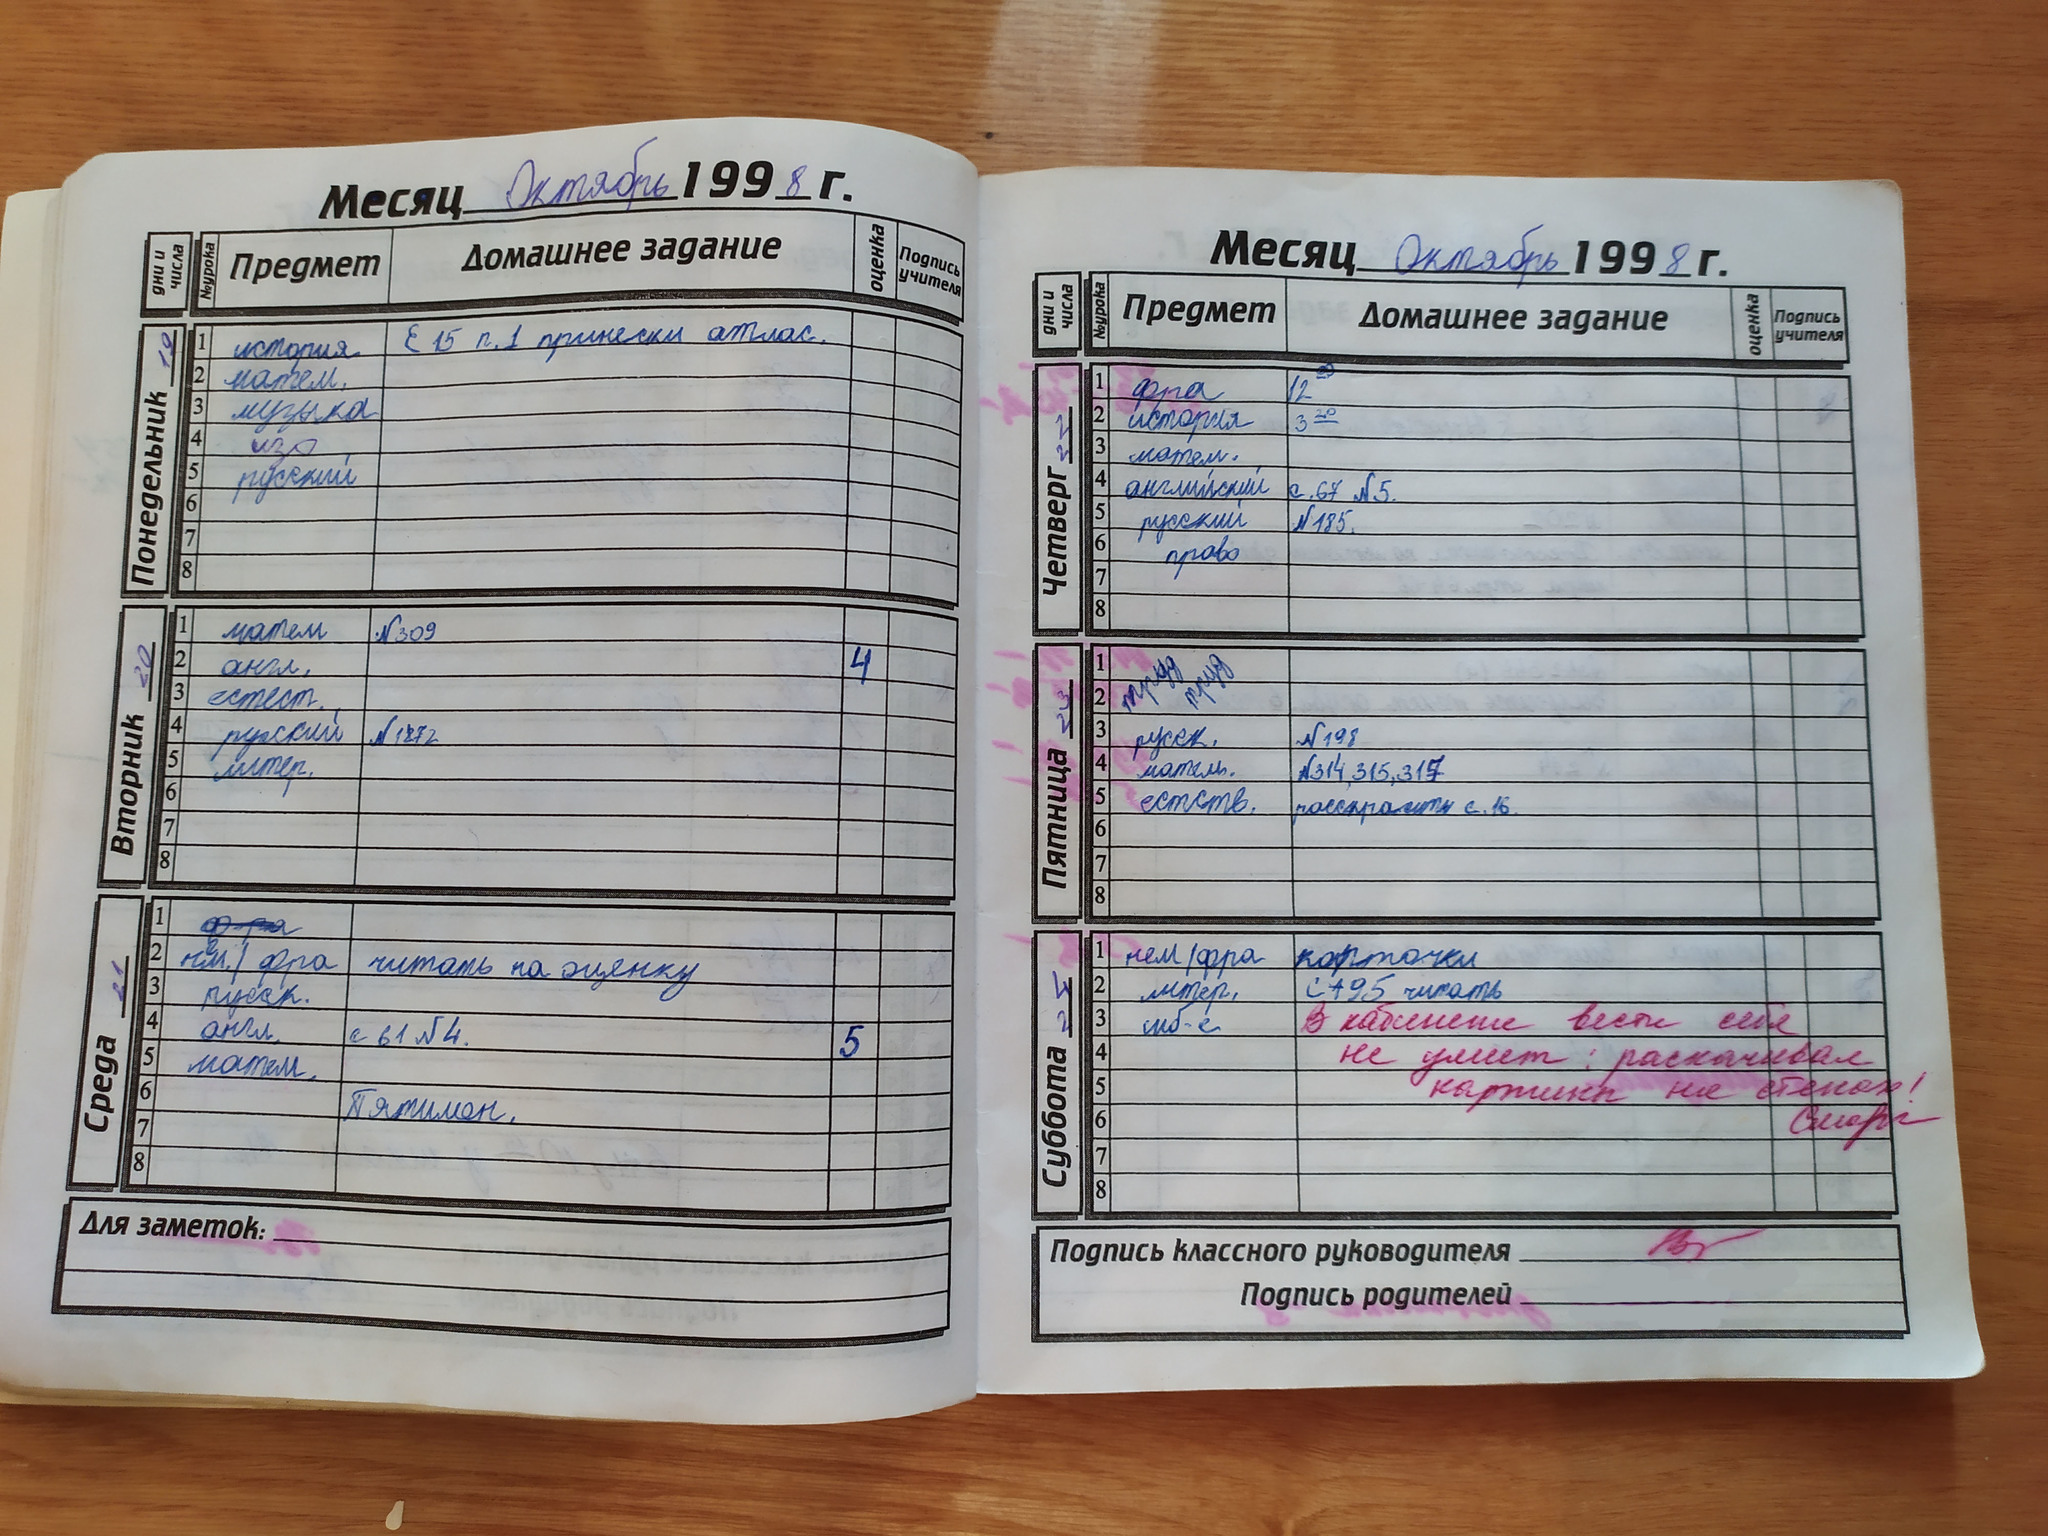 Месяц Октябрь 1998 г.
дни и числа №урока Предмет Домашнее задание оценка Подпись учителя
Понедельник 19
1 история Е 15 п.1 принески атлас.
2 матем.
3 музыка
4 изо
5 русский
6
7
8
Вторник 20
1 матем №309
2 англ. 4
3 естест.
4 русский
5 литер.
6
7
8
Среда 21
1
2 нем./фра читать на оценку
3 русск.
4 англ. с 61 №4. 5
5 матем.
6
7
8
Для заметок:
Месяц Октябрь 1998 г.
дни и числа №урока Предмет Домашнее задание оценка Подпись учителя
Четверг 22
1 фра 12
2 история 3 20
3 матем.
4 английский с.67 №5.
5 русский №185.
6 право
7
8
Пятница 23
1 труд
2 труд
3 русск. №198
4 матем. №314,315,317
5 естств. с.16.
6
7
8
Суббота
1 нем/фра карточки
2 литер. читать
3 В кабинете вести себя
4 не умеет: раскачивал
5 картины на стенах!
6
7
8
Подпись классного руководителя
Подпись родителей